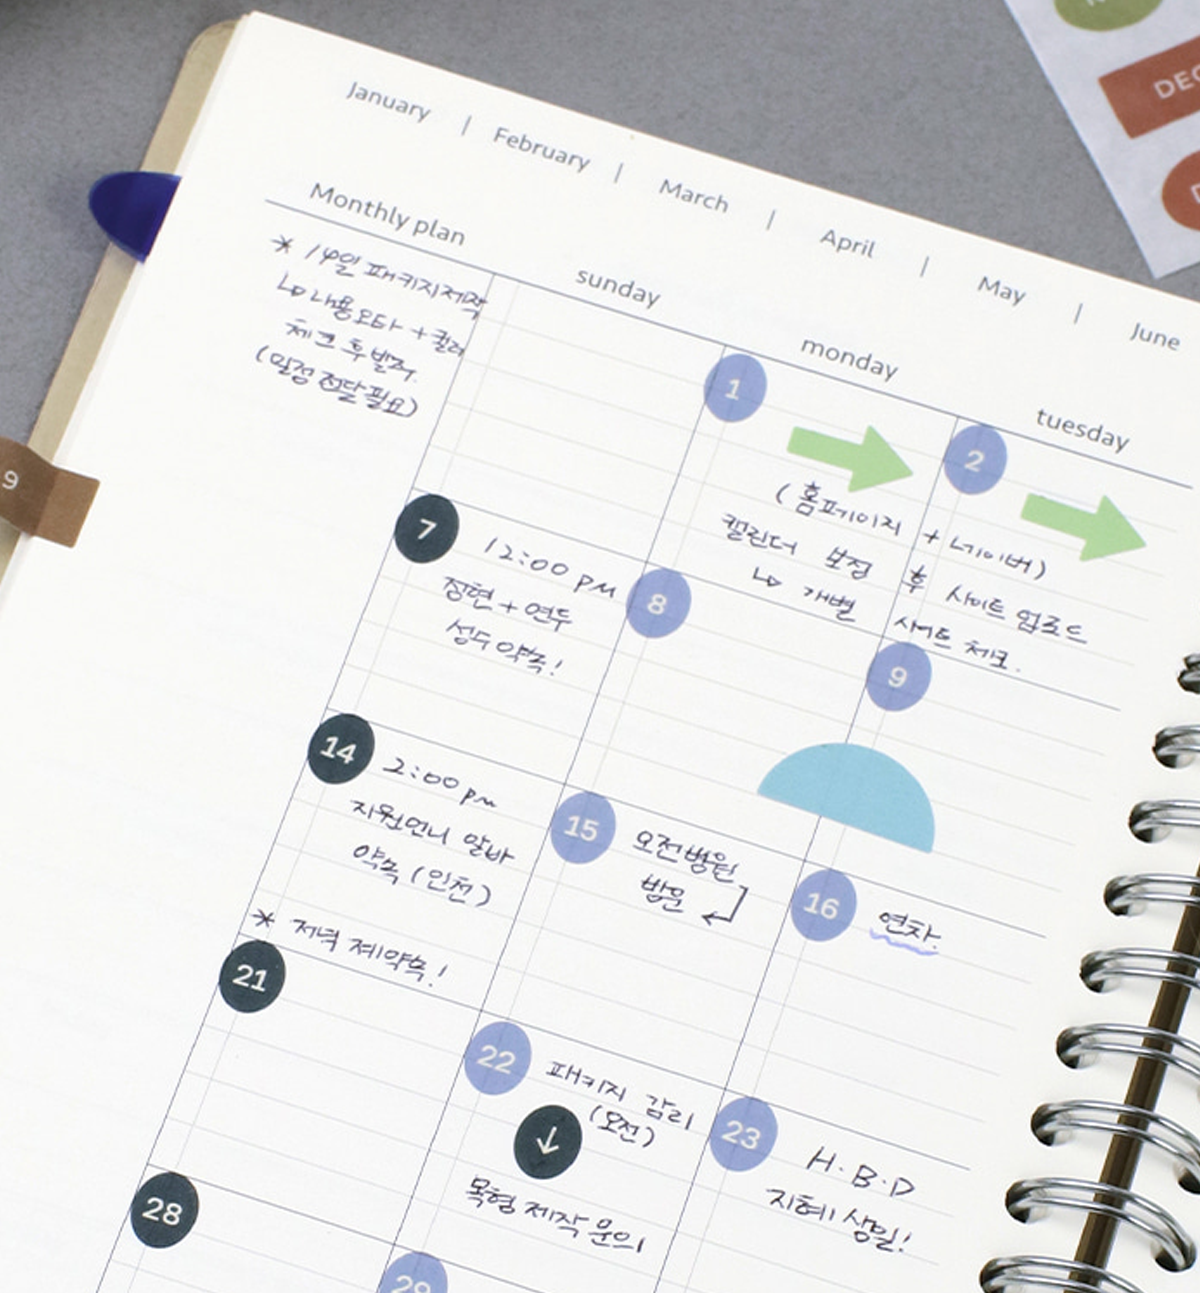 January | February | March | April | May | June
Monthly plan
sunday
monday
tuesday
* 14일 패키지제작
↳ 내용오타 + 컬러
체크 후 발주.
(일정 전달필요)
1
2
(홈페이지 + 네이버)
캘린더 보정 후 사이트 업로드
↳ 개별 사이트 체크.
7
12:00 pm
정현 + 연두
성수 약속!
8
9
14
2:00 pm
지원언니 알바
약속 (인천)
* 저녁 제약속!
15
오전병원
방문
16
연차.
21
22
패키지 감리
(오전)
↓
목형 제작 문의
23
H.B.D
지혜 생일!
28
29
9
DEC